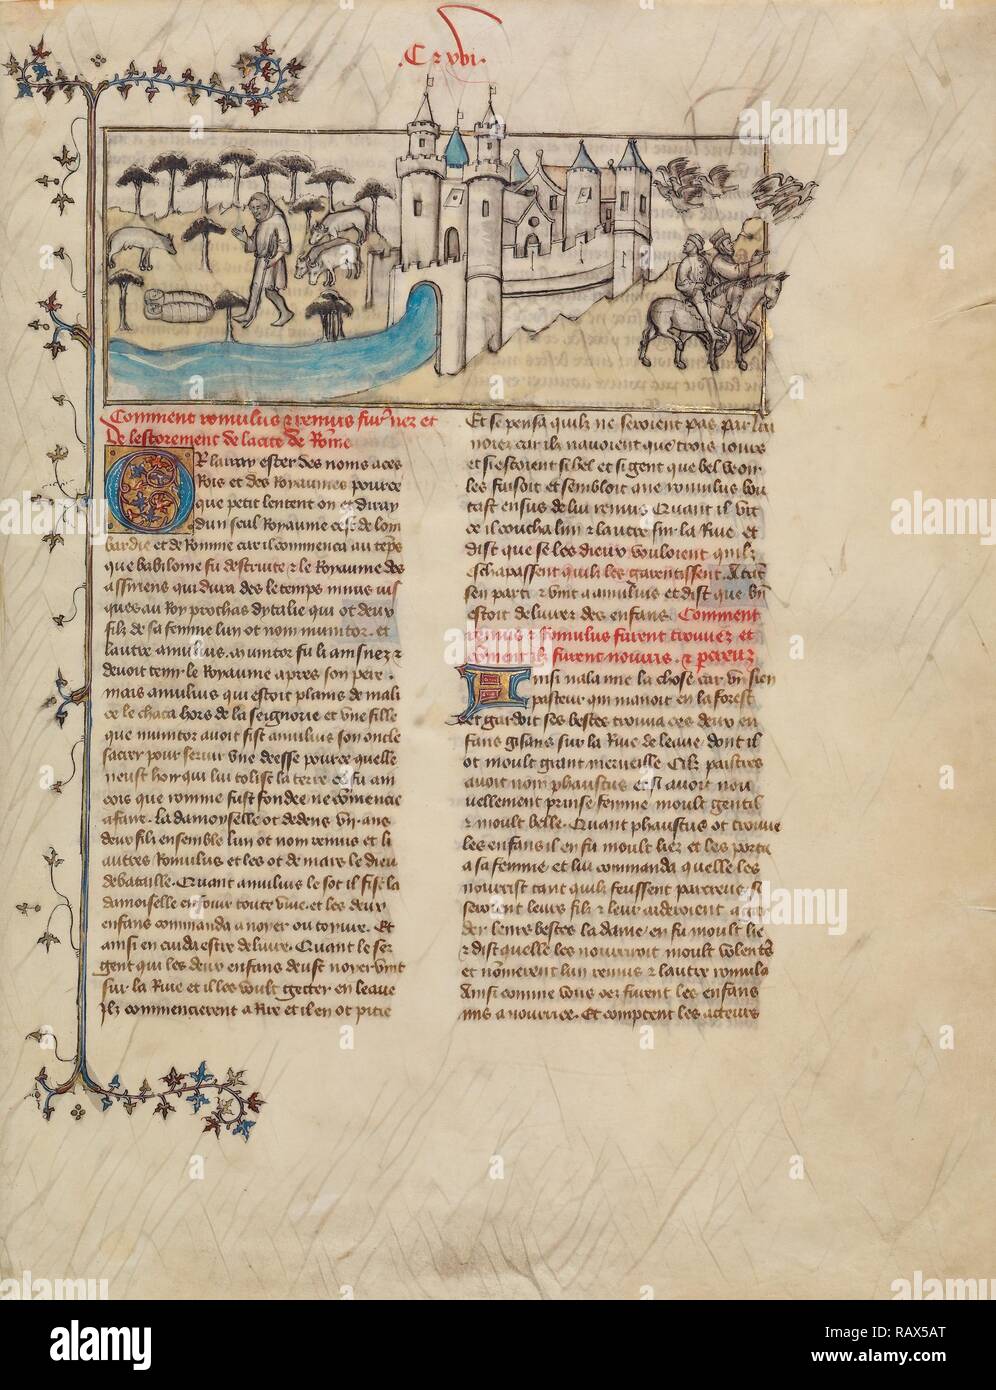 Comment romulus et remus fur'nez et
De lestorement de la cite de Rome
Or laray ester des noms a ces
Rois et des Royaumes pource
que petit lentent on et diray
dun seul Royaume cest de lom
bardie et de Romme car il commenca au temps
que babiloine fu destruite et le Royaume des
assiriens qui dura des le temps ninus
ques au Roy prochas dytalie qui ot deux
filz de sa femme lun ot nom munitor et
lautre amulius. munitor fu li ainsnez et
devoit tenir le Royaume apres son pere.
mais amulius qui estoit plains de mali
ce le chaca hors de la seignorie et vne fille
que munitor auoit fist amulius son oncle
sacrer pour seruir vne deesse pource quelle
neust hoir qui lui tolist la terre ce fu ain
cois que romme fust fondee ne commencie
a faire. La damoyselle ot dedens vn an
deux filz ensemble lun ot nom remus et li
autres Romulus et les ot de mars le dieu
de bataille. Quant amulius le sot il fist la
damoiselle enfouir toute viue et les deux
enfans commanda a noyer ou touiure. Et
ainsi en cuida estre deliure. Quant le ser
gent qui les deux enfans deust noyer vint
sur la Riue et il les voult getter en leaue
Ilz commencierent a Rire et il en ot pitie
Et se pensa quilz ne seroient pas par lui
noiez car ilz nauoient que trois iours
et si estoient si bel et si gent que bel veoir
les faisoit et sembloit que romulus bou
tast ensus de lui remus Quant il vit
ce il coucha lun et lautre sur la Riue et
dist que se les dieux vouloient quilz
eschapassent quilz les garentissent. A tant
sen parti et vint a amulius et dist que bien
estoit deliure des enfans. Comment
remus et Romulus furent trouuez et
comment ilz furent nourris. et pereuz
Ainsi nala mie la chose car vn sien
pasteur qui manoit en la forest
et gardoit ses bestes trouua ces deux en
fans gisans sur la Riue de leaue dont il
ot moult grant merueille Cilz paistres
auoit nom phaustus et si auoit nou
uellement prinse femme moult gentil
et moult belle. Quant phaustus ot trouue
les enfans il en fu moult liez et les porta
a sa femme et lui commanda quelle les
nourrist tant quilz feussent parcreuz si
seroient leurs filz et leur aideroient a gar
der leurs bestes la dame en fu moult lie
et dist quelle les nourriroit moult volentiers
et nommerent lun remus et lautre romulus
Ainsi comme vous oez furent les enfans
mis a nourrice. Et comptent les acteurs
alamy
alamy
Image ID: RAX5AT
www.alamy.com